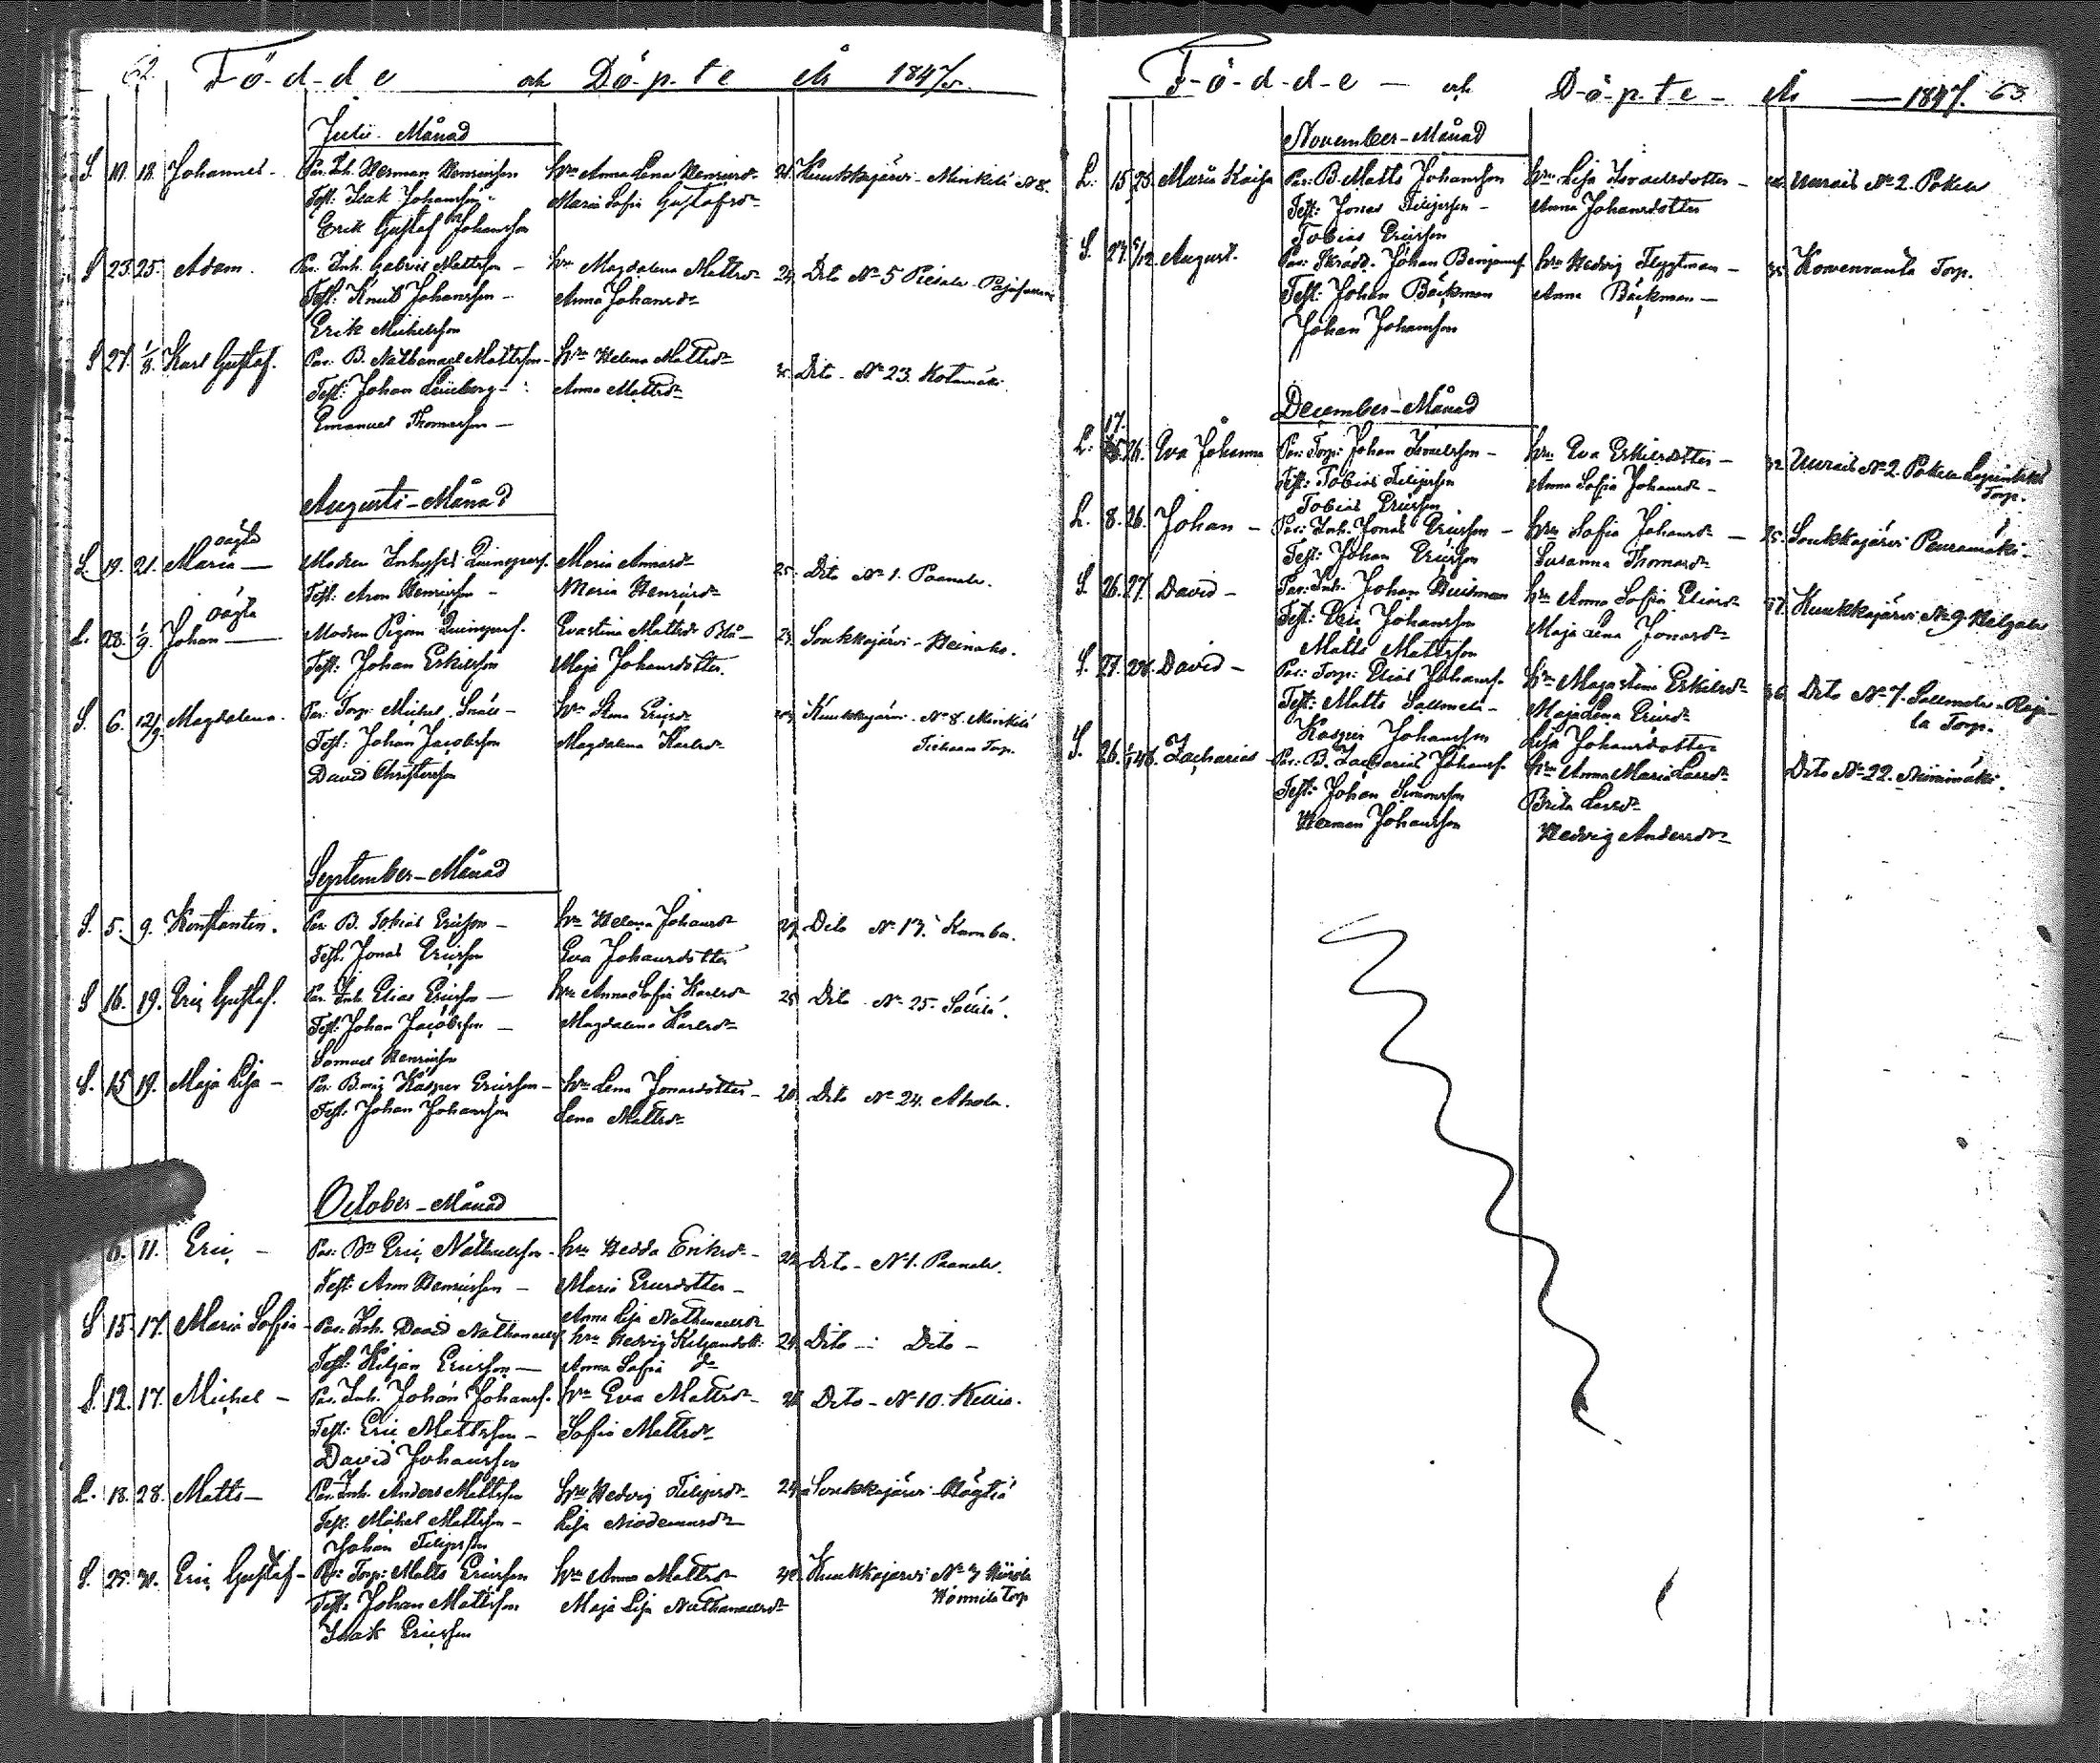 62. Fö-d-de och Dö-p-te År 1847.
Julii-Månad
S 10. 18. Johannes- Par: Inh. Herman Henricsson hru Anna Lena Henricsdr Kuukkajärvi-Minkilä No 8.
Test: Isak Johansson- Maria Sofia Gustafsdr
Erik Gustaf Johansson
S 23. 25. Adam. Par: Inh. Gabriel Mattsson- hru Magdalena Mattsdr Dito No 5 Piesala
Test: Knut Johansson- Anna Johansdr
Erik Michelsson
S 27. 1/8. Karl Gustaf. Par: B. Nathanael Mattsson- hru Helena Mattsdr Dito- No 23. Kotamäki.
Test: Johan Anna Mattsdr
Emanuel Thomasson-
Augusti-Månad
oägta
L. 19. 21. Maria- Modren Inhyses Quinspers. Maria Annasdr 25. Dito No 1. Paanala.
Test: Aron Henricsson- Maria Henricsdr
oägta
L. 28. 1/9. Johan- Modren Pigan Quinspers. Evastina Mattsdr Blå- Soukkajärvi-Heinaho.
Test: Johan Eskilsson Maja Johansdotter.
S. 6. 12/9. Magdalena. Par: Torp: Michel hru Stina Ericsdr Kuukkajärvi-No 8. Minkilä
Test: Johan Jacobsson Magdalena Karlsdr Torp.
David Christersson
September-Månad
S. 5. 9. Konstantin. Par: B. Tobias Ericsson- hru Helena Johansdr Dito No 13. Kamba.
Test. Jonas Ericsson Eva Johansdotter
S 16. 19. Eric Gustaf. Par: Inh. Elias Ericsson- hru Anna Sofia Karlsdr 25 Dito No 25. Sällilä.
Test: Johan Jacobsson- Magdalena Karlsdr
Samuel Henricsson
S. 15 19. Maja Lisa- Par: Kasper Ericsson- hru Lena Jonasdotter- 20 Dito No 24. Ahola.
Test: Johan Johansson Lena Mattsdr
October-Månad
6. 11. Eric- Par: Bn Eric Nathanaelsson- hru Hedda Eriksdr- Dito- No 1. Paanala.
Test: Aron Henricsson- Maria Ericsdotter-
Anna Lisa Nathanaelsdr
S 15. 17. Maria Sofia- Par. Inh. David Nathanaelss. hru Hedvig Kiljansdott: Dito-: Dito-
Test: Kiljan Ericsson- Anna Sofia do
S. 12. 17. Michel- Par. Inh. Johan Johanss. hru Eva Mattsdr- Dito- No 10. Kellio.
Test: Eric Mattsson- Sofia Mattsdr
David Johansson
L. 18. 28. Matts- Par. Inh. Anders Mattsson hru Hedvig Filipsdr- Soukkajärvi-
Test: Michel Mattsson- Lisa Nicodemusdr
Johan Filipsson
S. 25. Eric Gustaf- Par: Torp: Matts Ericsson hru Anna Mattsdr Kuukkajärvi No 3
Test: Johan Mattsson Maja Lisa Nathanaelsdr Torp
Isak Ericsson
F-ö-d-d-e- och D-ö-p-t-e- År -1847. 63.
November-Månad
L. 15 25. Maria Kaisa Par: B. Matts Johansson hru Lisa Israelsdotter- Uurais No 2. Pokela
Test: Jonas Filipsson- Anna Johansdotter
Tobias Ericsson
S. 27. 5/12 August. Par: Skrädd. Johan Benjamss. hru Hedvig Flygtman- Korvenranta Torp.
Test: Johan Bäckman Anna Bäckman-
Johan Johansson
December-Månad
17.
L. 26. Eva Johanna Par: Torp: Johan Israelsson- hru Eva Eskilsdotter- 32. Uurais No 2. Pokela
Test: Tobias Filipsson Anna Sofia Johansdr- Torp.
Tobias Ericsson
L. 8. 26. Johan- Par: Inh. Jonas Ericsson- hru Sofia Johansdr- 25. Soukkajärvi Peuramäki-
Test: Johan Ericsson Susanna Thomasdr
S. 26. 27. David- Par: Inh. Johan Huisman hru Anna Sofia Eliasdr 37. Kuukkajärvi No 9 Heigala
Test: Eric Johansson Maja Lena Jonasdr-
Matts Mattsson
S. 27. 28. David- Par: Torp: Elias Johanss. hru Majastina Eskilsdr 36. Dito No 7. Sallmela-Raja-
Test: Matts Sallmela- Maja Lena Ericsdr- la Torp.
Kasper Johansson Lisa Johansdotter
S. 26. Zacharias- Par: B. Zacharias Johanss. hru Anna Maria Larsdr Dito No 22. Niinimäki.
Test: Johan Simonsson Brita Larsdr
Herman Johansson Hedvig Andersdr